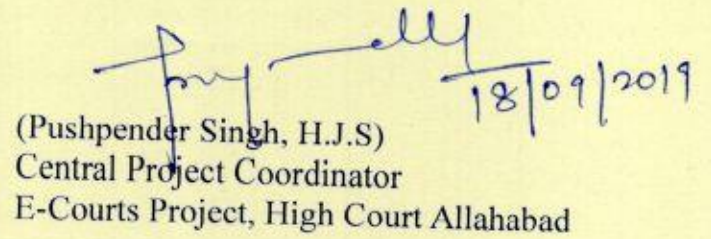 18/09/2019
(Pushpender Singh, H.J.S)
Central Project Coordinator
E-Courts Project, High Court Allahabad